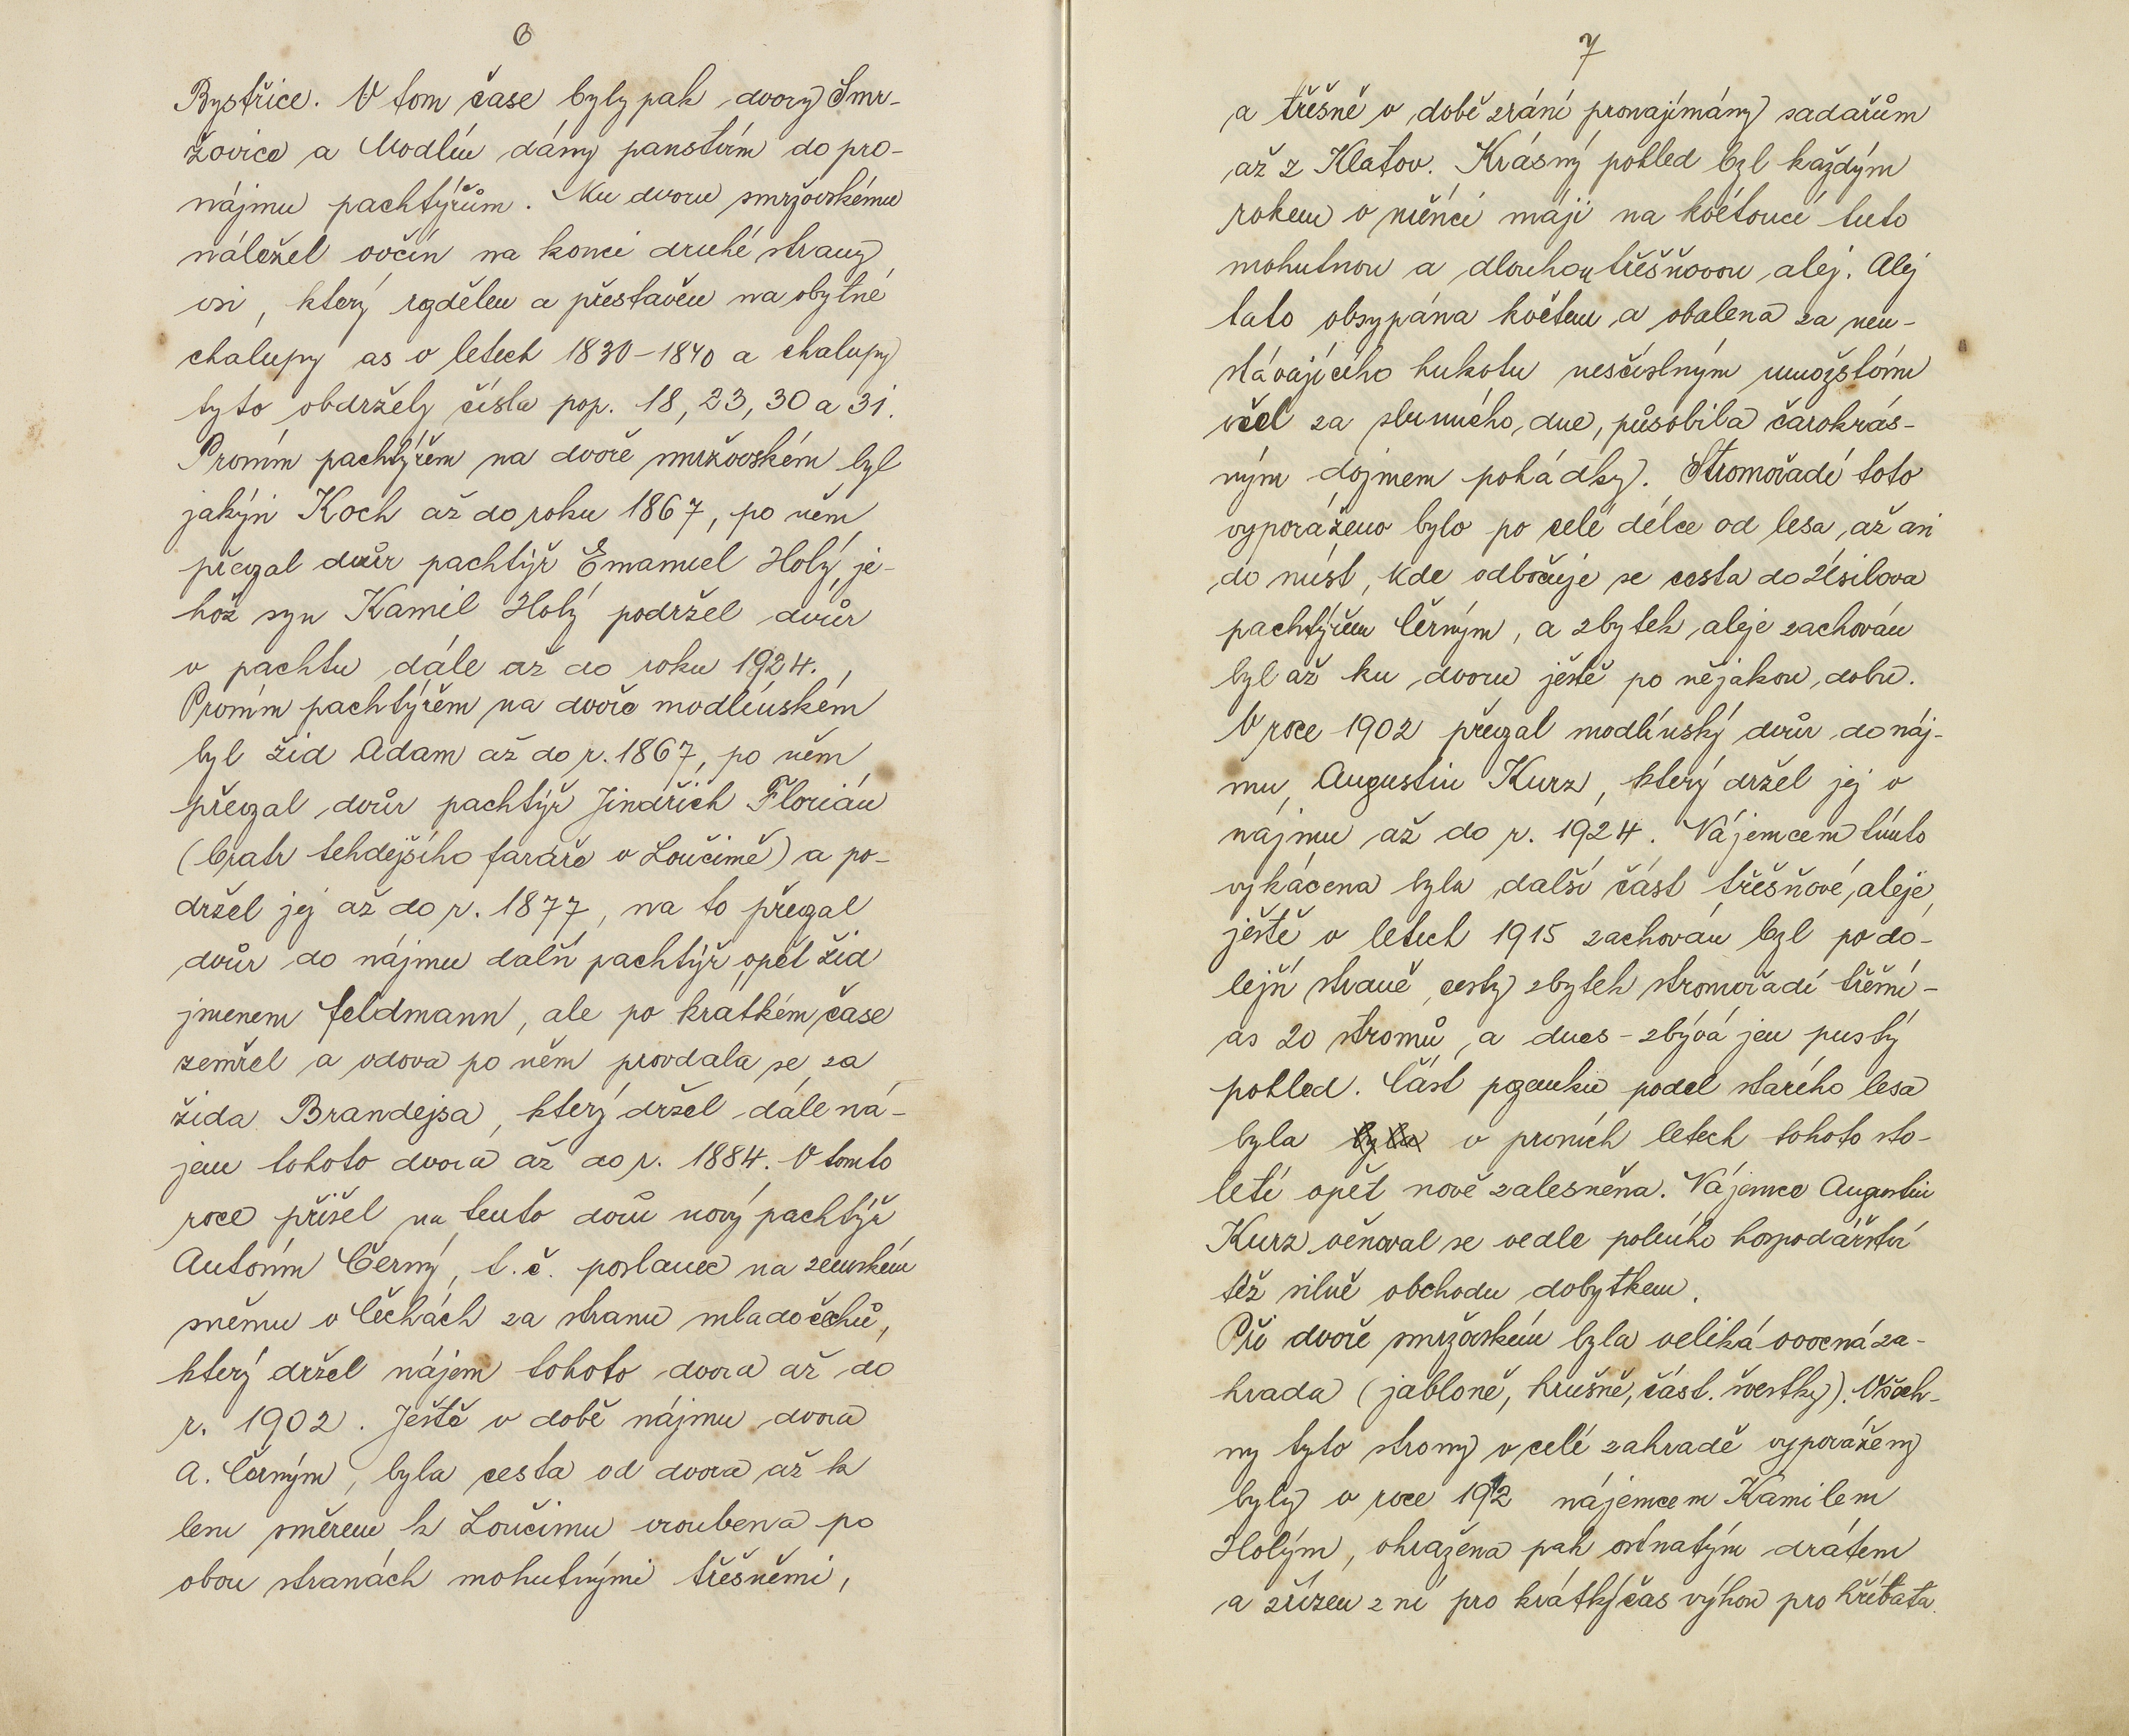 6
Bystřice. V tom čase byly pak dvory Smr-
žovice a Modlín dány panstvím do pro-
nájmu pachtýřům. Ku dvoru smržovskému
náležel ovčín na konci druhé strany
vsi, který rozdělen a přestavěn na obytné
chalupy as v letech 1830-1840 a chalupy
tyto obdržely čísla pop. 18, 23, 30 a 31.
Prvním pachtýřem na dvoře smržovském byl
jakýsi Koch až do roku 1867, po něm
převzal dvůr pachtýř Emanuel Holý, je-
hož syn Kamil Holý podržel dvůr
v pachtu dále až do roku 1924.
Prvním pachtýřem na dvoře modlínském
byl žid Adam až do r. 1867, po něm
převzal dvůr pachtýř Jindřich Florián
(bratr tehdejšího faráře v Loučimě) a po-
držel jej až do r. 1877, na to převzal
dvůr do nájmu další pachtýř opět žid
jmenem Feldmann, ale po krátkém čase
zemřel a vdova po něm provdala se za
žida Brandejsa, který držel dále ná-
jem tohoto dvora až do r. 1884. V tomto
roce přišel na tento dvůr nový pachtýř
Antonín Černý, t. č. poslanec na zemském
sněmu v Čechách za stranu mladočechů,
který držel nájem tohoto dvora až do
r. 1902. Ještě v době nájmu dvora
A. Černým, byla cesta od dvora až k
lesu směrem k Loučimu vroubena po
obou stranách mohutnými třešněmi,
7
a třešně v době zrání pronajímány sadařům
až z Klatov. Krásný pohled byl každým
rokem v měsíci máji na kvétoucí tuto
mohutnou a dlouhou třešňovou alej. Alej
tato obsypána květem a obalena za neu-
stávajícího hukotu nesčíslným množstvím
včel za slunného dne, působila čarokrás-
ným dojmem pohádky. Stromořadí toto
vyporáženo bylo po celé délce od lesa, až asi
do míst, kde odbočuje se cesta do Úsilova
pachtýřem Černým, a zbytek aleje zachován
byl až ku dvoru ještě po nějakou dobu.
V roce 1902 převzal modlínský dvůr do náj-
mu Augustin Kurz, který držel jej v
nájmu až do r. 1924. Nájemcem tímto
vykácena byla další část třešňové aleje,
ještě v letech 1915 zachován byl po do-
lejší straně cesty zbytek stromořadí třešní-
as 20 stromů, a dnes - zbývá jen pustý
pohled. Část pozemku podél starého lesa
byla byla v prvních letech tohoto sto-
letí opět nově zalesněna. Nájemce Augustin
Kurz věnoval se vedle polního hospodářství
též silně obchodu dobytkem.
Při dvoře smržovském byla veliká ovocná za-
hrada (jabloně, hrušně, část. švestky). Všech-
ny tyto stromy v celé zahradě vyporáženy
byly v roce 1912 nájemcem Kamilem
Holým, ohražena pak ostnatým drátem
a zřízen z ní pro krátký čas výhon pro hříbata.